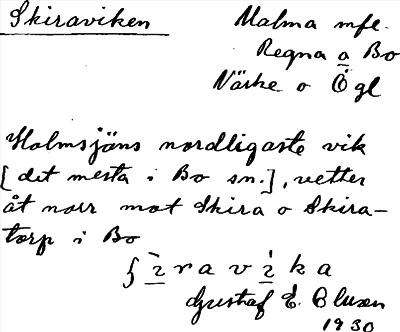 Skiraviken
Malma mfl.
Regna a Bo
Närke o Ögl
Holmsjöns nordligaste vik
[det mesta i Bo sn.], vetter
åt norr mot Skira o Skira-
torp i Bo
Gustaf E.
1930